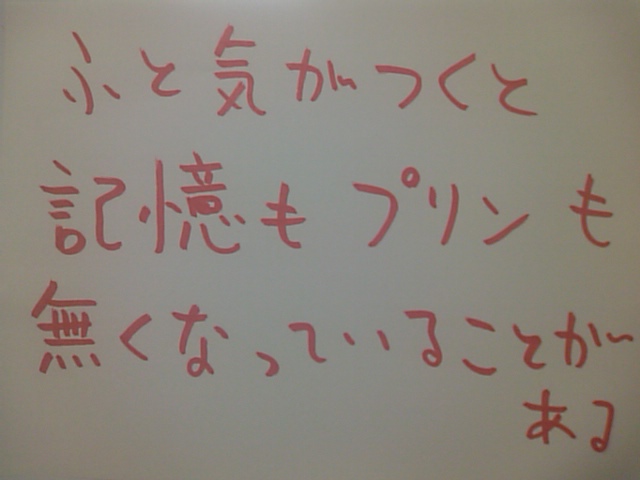 ふと気がつくと
記憶もプリンも
無くなっていることが
ある